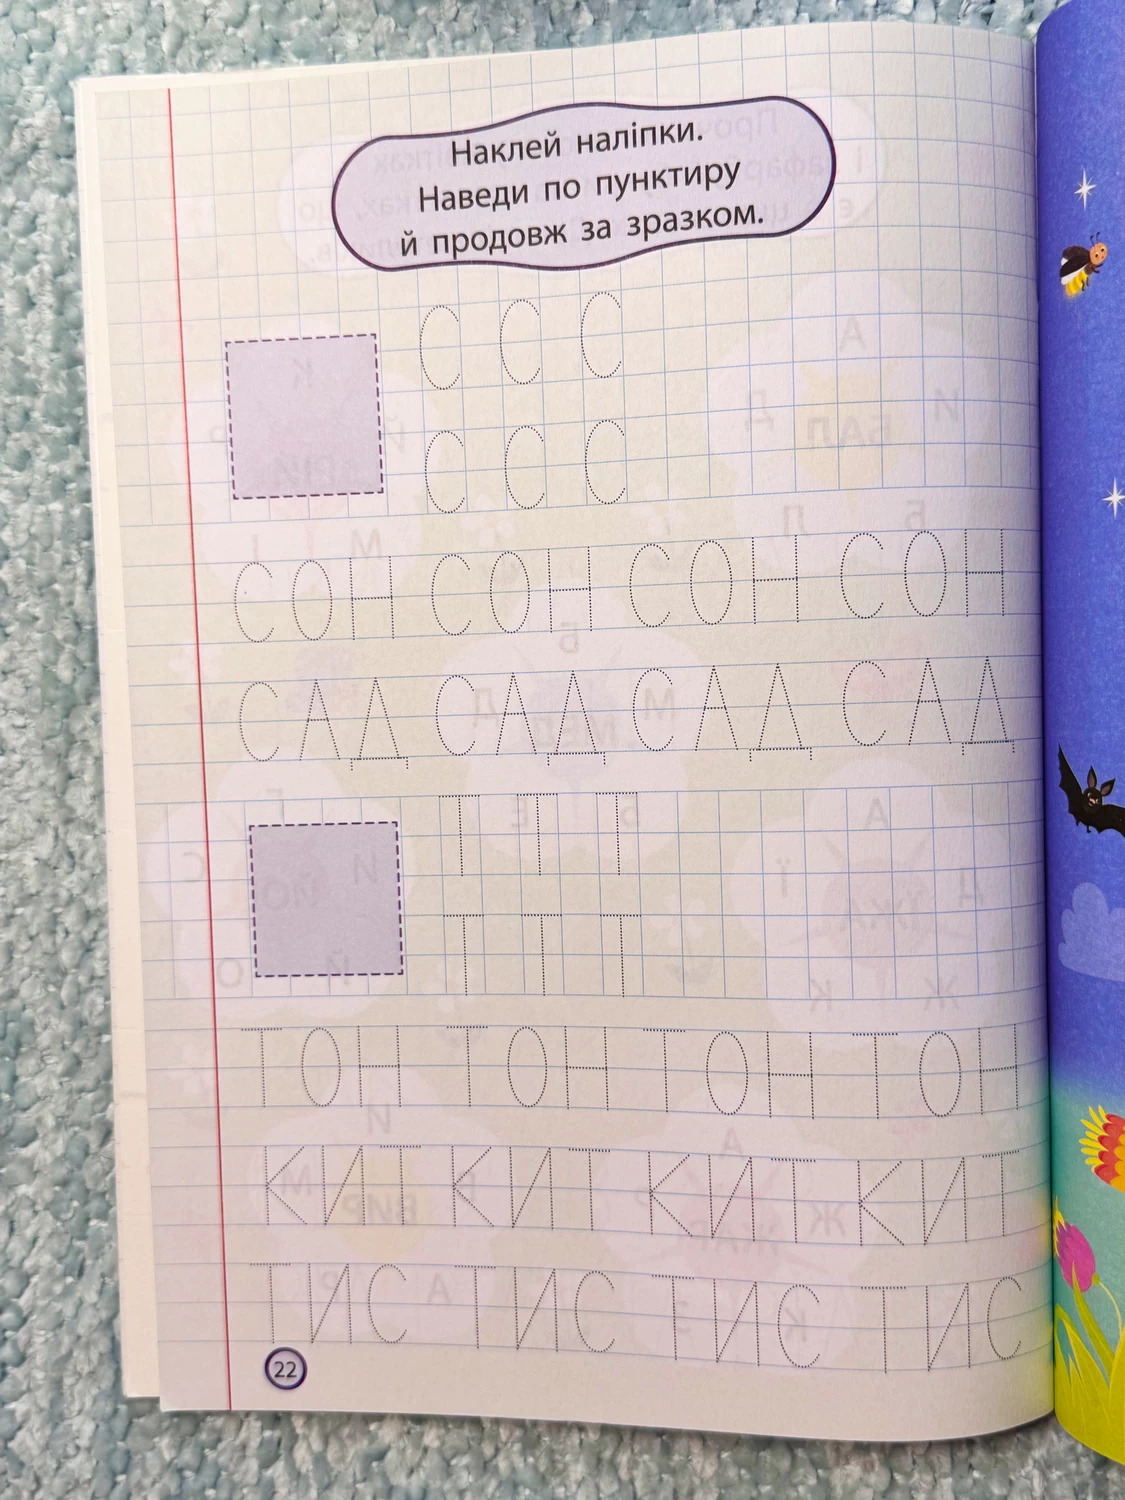 Наклей наліпки.
Наведи по пунктиру
й продовж за зразком.
С С С
С С С
СОН СОН СОН СОН
САД САД САД САД
Т Т Т
Т Т Т
ТОН ТОН ТОН ТОН
КИТ КИТ КИТ КИТ
ТИС ТИС ТИС ТИС
22